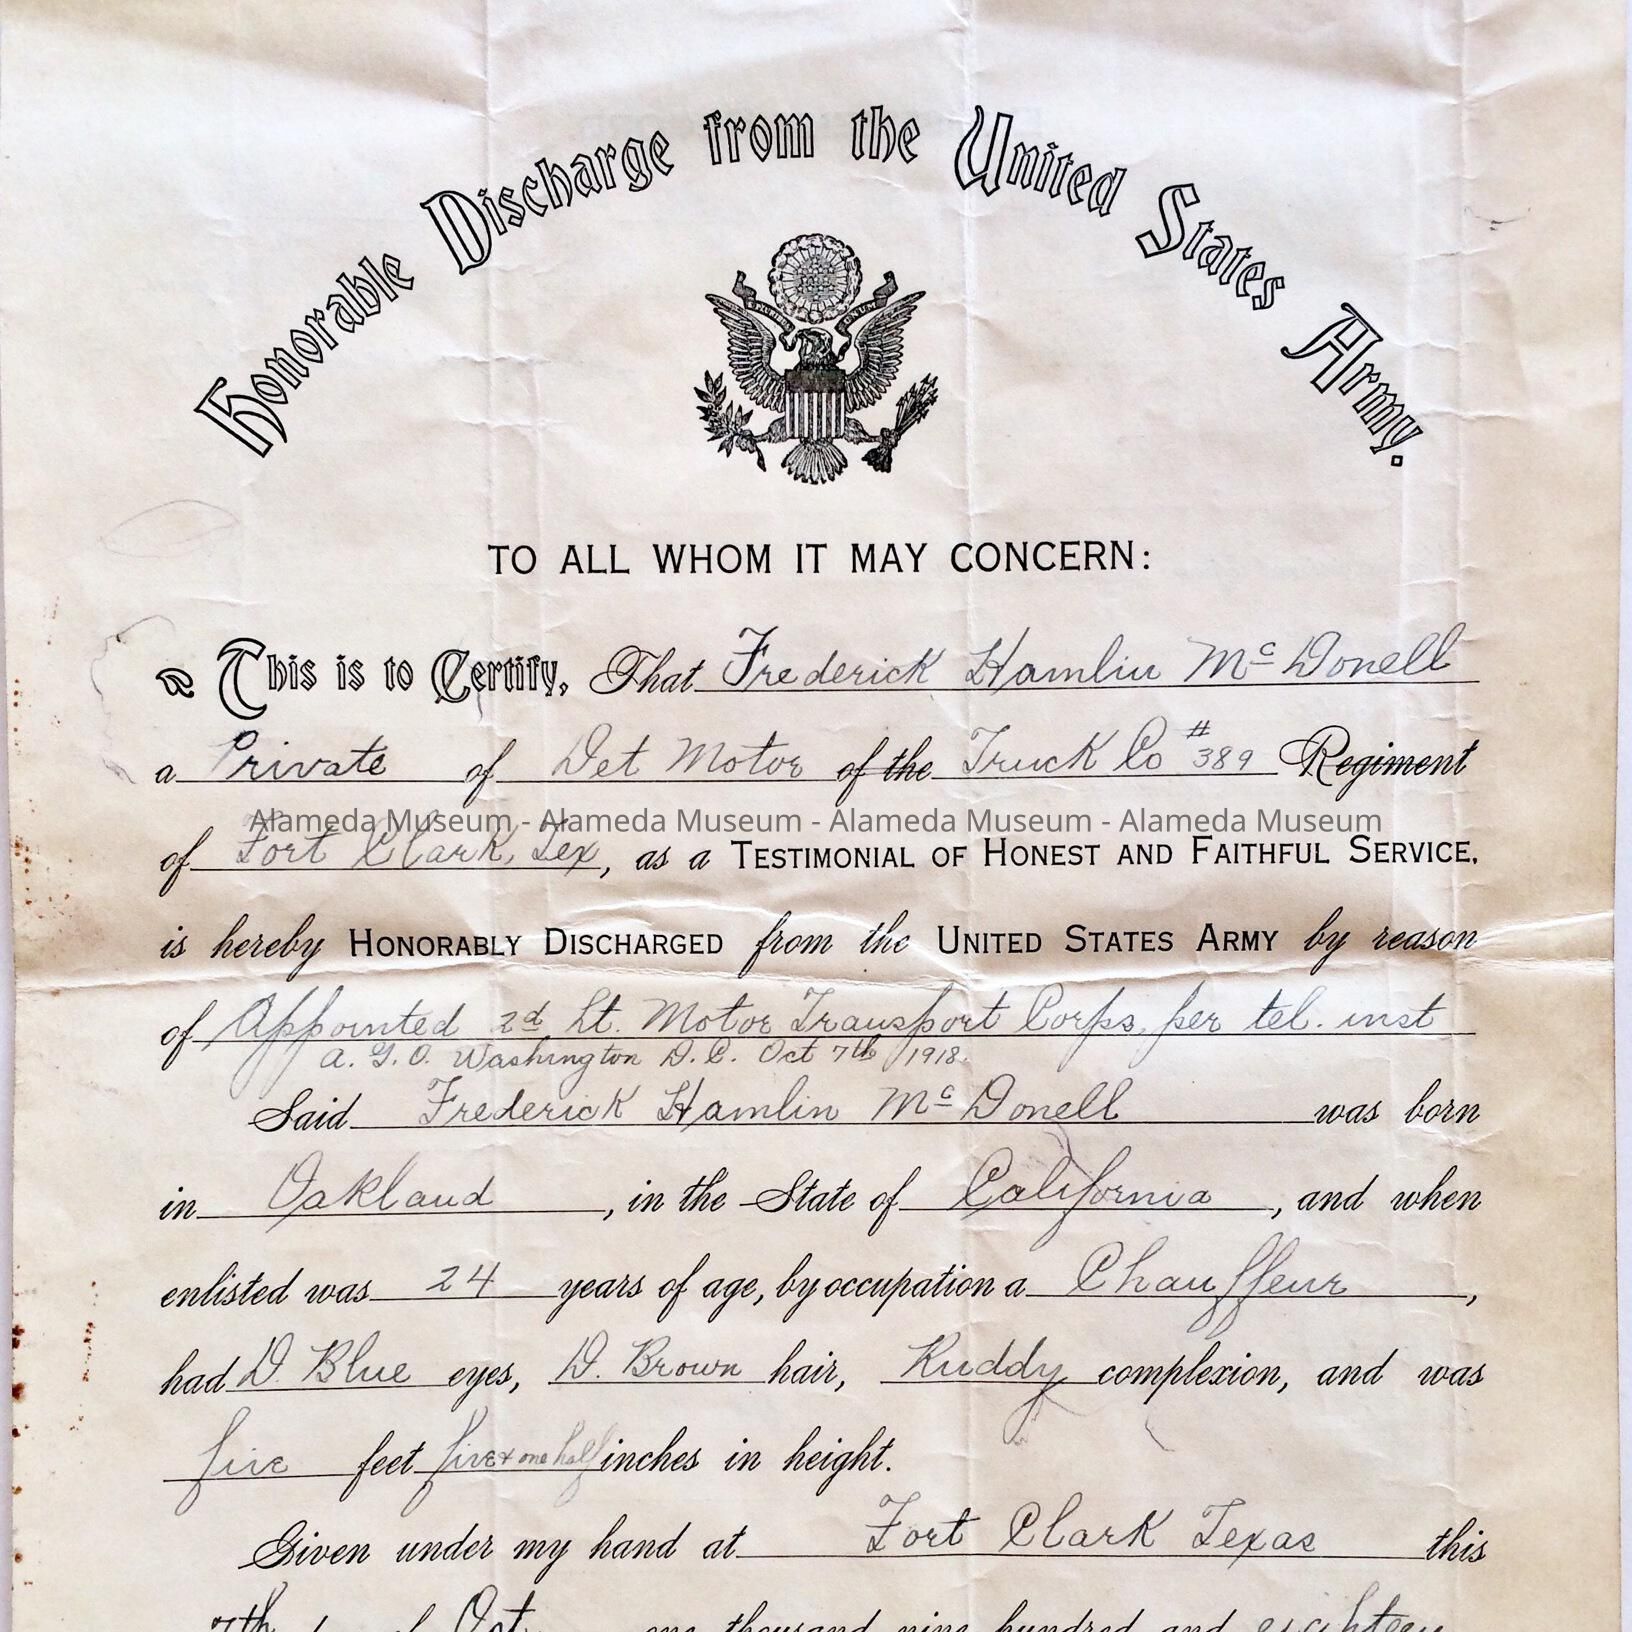 Honorable Discharge from the United States Army.
TO ALL WHOM IT MAY CONCERN:
This is to Certify, That Frederick Hamlin McDonell
a Private of Det Motor of the Truck Co #389 Regiment
Alameda Museum - Alameda Museum - Alameda Museum - Alameda Museum
of Fort Clark, Tex, as a TESTIMONIAL OF HONEST AND FAITHFUL SERVICE,
is hereby HONORABLY DISCHARGED from the UNITED STATES ARMY by reason
of Appointed 2d Lt. Motor Transport Corps, per tel. inst
A. G. O. Washington D.C. Oct 7th 1918.
Said Frederick Hamlin McDonell was born
in Oakland, in the State of California, and when
enlisted was 24 years of age, by occupation a Chauffeur,
had D. Blue eyes, D. Brown hair, Ruddy complexion, and was
five feet five & one half inches in height.
Given under my hand at Fort Clark Texas this
7th day of Oct one thousand nine hundred and eighteen